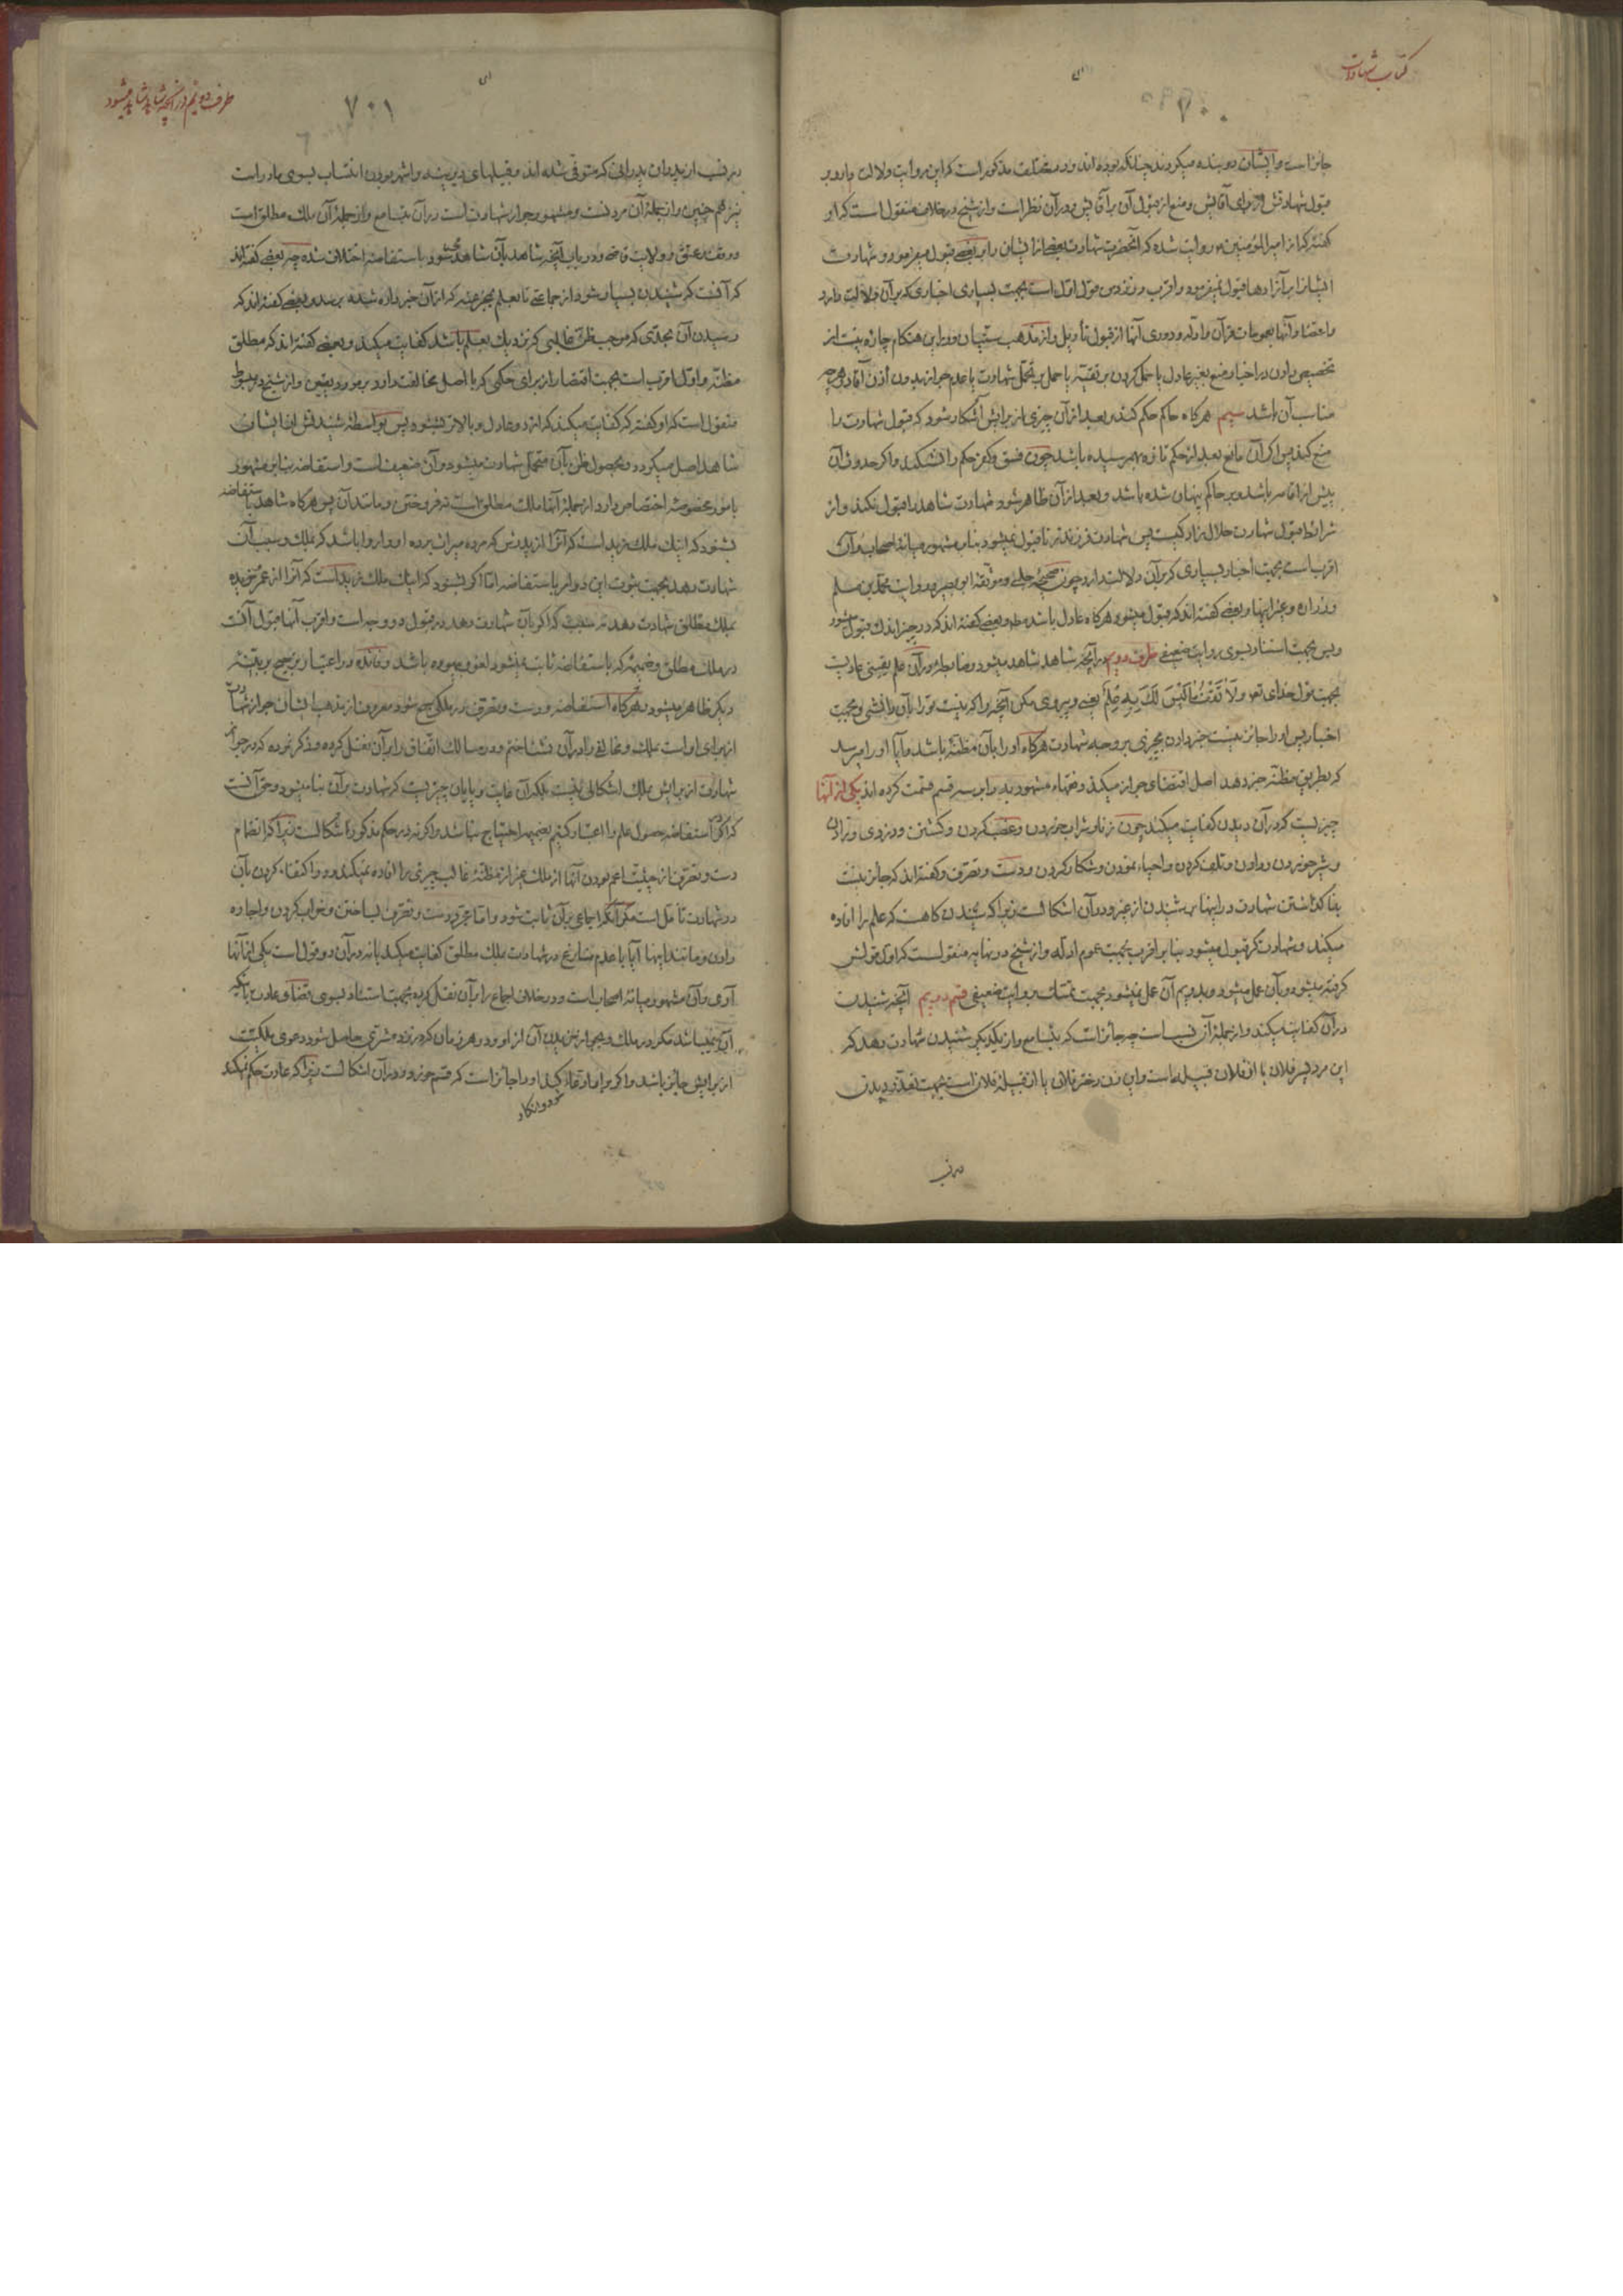 كتاب شهادات
٧٠٠
جائز است و ايشان دو بنده ميكردند چنانكه بوده اند و در مختلف مذكور است كه اين روايت دلالت دارد بر
قبول شهادتش از براى آقايش و منع از قبول آن بر آقايش و در آن نظر است و از شيخ در خلاف منقول است كه او
گفته كه از امير المؤمنين روايت شده كه آنحضرت شهادت بعضى از ايشان را بر بعضى قبول ميفرمود و شهادت
ايشان را بر آزادها قبول نميفرمود و اقرب در نزد من قول اول است بجهت بسيارى اخبارى كه بر آن دلالت دارد
و اعتضاد آنها بعمومات قرآن و ادله و دورى آنها از قبول تأويل و از مذهب سنيان و در اين هنكام چاره نيست از
تخصيص دادن در اخبار منع بغير عادل يا حمل كردن بر تقيه يا حمل بر تحمل شهادت يا عدم جواز بدون اذن آقا و هرچه
مناسب آن باشد سيم هر كاه حاكم حكم كند و بعد از آن چيزى از برايش آشكار شود كه قبول شهادت را
منع كند پس اكر آن مانع بعد از حكم تازه بهم رسيده باشد چون فسق و كفر حكم را نشكند و اكر حدوث آن
پيش از اقامه باشد و بر حاكم پنهان شده باشد و بعد از آن ظاهر شود شهادت شاهد را قبول نكند و از
شرائط قبول شهادت حلال زادكيست پس شهادت فرزند زنا قبول نميشود بنابر مشهور ميانه اصحاب و آن
اقرب است بجهت اخبار بسيارى كه بر آن دلالت دارد چون صحيحه حلبى و موثقه ابو بصير و روايت محمد بن مسلم
و زراره و غير اينها و بعضى گفته اند كه قبول ميشود هر كاه عادل باشد و بعضى گفته اند كه در چيز اندك قبول ميشود
و بس بجهت استناد بسوى روايت ضعيفى طرف دويم در آنچه شاهد شاهد ميشود و ضابطه در آن علم يقينى عاديست
بجهت قول خداى تعالى وَلاَ تَقْفُ مَا لَيْسَ لَكَ بِهِ عِلْمٌ يعنى و پيروى مكن آنچه را كه نيست تو را بآن دانشى و بجهت
اخبار پس او را جائز نيست خبر دادن بچيزى بر وجه شهادت هر كاه او را بآن مظنه باشد و آيا او را ميرسد
كه بطريق مظنه خبر دهد اصل اقتضاى جواز ميكند و فقهاء مشهود به را بر سه قسم قسمت كرده اند يكى از آنها
چيزيست كه در آن ديدن كفايت ميكند چون زنا و شراب خوردن و غصب كردن و كشتن و دزدى و زادن
و شير خوردن و دادن و تلف كردن و احياء نمودن و شكار كردن و دست و تصرف و گفته اند كه جائز نيست
بنا كذاشتن شهادت در اينها بر شنيدن از غير و در آن اشكالست زيرا كه شنيدن كاهست كه علم را افاده
ميكند و شهادت كر قبول ميشود بنابر اقرب بجهت عموم ادله و از شيخ در نهايه منقولست كه اول قولش
كرفته ميشود و بآن عمل ميشود و بدويم آن عمل نميشود بجهت تمسك بروايت ضعيفى قسم دويم آنچه شنيدن
در آن كفايت ميكند و از جمله آن نسب است چه جائز است كه بتسامع و از يكديكر شنيدن شهادت دهد كه
اين مرد پسر فلان يا از فلان قبيله است و اين زن دختر فلان يا از قبيله فلان است بجهت تعذر ديدن
در نسب
طرف دويم در آنچه شاهد شاهد ميشود
٧٠١
در نسب از پدران پدرانى كه متوفى شده اند و قبيلهاى ديرينه و اشهر بودن انتساب بسوى مادر است
نيز هم چنين و از جمله آن مردنست و مشهور جواز شهادت است در آن بتسامع و از جمله آن ملك مطلق است
و وقف و عتق و ولايت قاضى و در بيان آنچه شاهد بآن شاهد ميشود باستفاضه اختلاف شده چه بعضى گفته اند
كه آنست كه شنيدن بسيار شود از جماعتى تا بعلم بمخبر عنه كه از آن خبر داده شده برسد و بعضى گفته اند كه
رسيدن آن بحدى كه موجب ظن غالبى كه نزديك بعلم باشد كفايت ميكند و بعضى گفته اند كه مطلق
مظنه و اول اقرب است بجهت اقتضار از براى حكمى كه با اصل مخالفت دارد بر مورد يقين و از شيخ در مبسوط
منقول است كه او گفته كه كفايت ميكند كه از دو عادل و بالاتر بشنود پس بواسطه شنيدنش از ايشان
شاهد اصل ميكردد و بحصول ظن بآن متحمل شهادت ميشود و آن ضعيف است و استفاضه بنابر مشهور
بامور مخصوصه اختصاص دارد از جمله آنها ملك مطلق است نه فروختن و مانند آن پس هر كاه شاهد باستفاضه
بشنود كه اينك ملك زيد است كه آنرا از پدرش كه مرده ميراث برده او را روا باشد كه بملك و سبب آن
شهادت دهد بجهت ثبوت اين دو امر باستفاضه اما اكر بشنود كه اينك ملك زيد است كه آنرا از عمر خريده
بملك مطلق شهادت دهد نه سبب كه اكر بآن شهادت دهد در قبول دو وجه است و اقرب آنها قبول آنست
در ملك مطلق و ضميمه كه باستفاضه ثابت نميشود لغو و بيهوده باشد و فائده در اعتبار ترجيح بر بينه
ديكر ظاهر ميشود و هر كاه استفاضه و دست و تصرف در ملكى جمع شود معروف از مذهب ايشان جواز شهادت
از براى او است بملك و مخالفى را در آن نشناختم و در مسالك اتفاق را بر آن نقل كرده و ذكر نموده كه در جواز
شهادت از برايش بملك اشكالى نيست بلكه آن غايت و پايان چيزيست كه شهادت بر آن بنا ميشود و حق آنست
كه اكر در استفاضه حصول علم را اعتبار كنيم بضميمه احتياج نباشد و اكر نه در حكم مذكور اشكالست زيرا كه انضمام
دست و تصرف از حيثيت اعم بودن آنها از ملك غير از مظنه غالب چيزى را افاده نميكند و در اكتفاء كردن بآن
در شهادت تأمل است مكر آنكه اجماعى بر آن ثابت شود و اما مجرد دست و تصرف بساختن و خراب كردن و اجاره
دادن و مانند اينها آيا با عدم منازع در شهادت بملك مطلق كفايت ميكند يا نه در آن دو قول است يكى از آنها
آرى و آن مشهور ميانه اصحاب است و در خلاف اجماع را بر آن نقل كرده بجهت استناد بسوى قضاء عادت باينكه
آن نميباشد مكر در ملك و بجواز خريدن آن از او و در هر زمان كه در نزد مشترى حاصل شود دعوى ملكيت
از برايش جائز باشد و اكر بر او ادعاء كند او را جائز است كه قسم خورد و در آن اشكالست زيرا كه عادت حكم نميكند